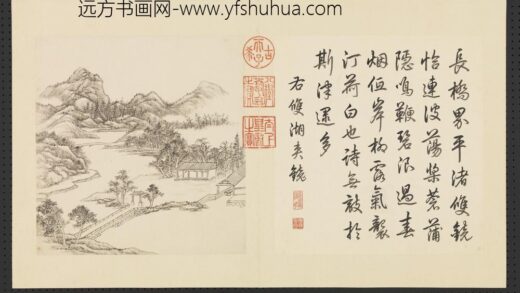 远方书画网-www.yfshuhua.com
長橋界平渚雙鏡
恰連波蕩槳蒼蒲
隱鳴鞭碧浪過春
烟低岸柳露氣襲
汀荷白也詩無敵於
斯津逮多
右雙湖夾鏡